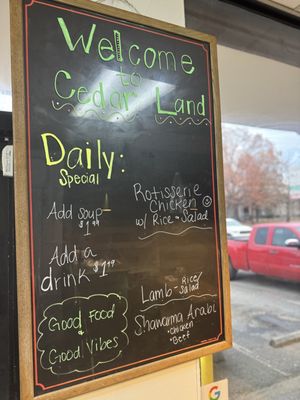 Welcome
to
Cedar Land
Daily:
Special
Add soup
$1.99
Add a
drink $1.99
Good Food
&
Good Vibes
Rotisserie
Chicken
w/ Rice & Salad
Lamb - Rice/
Salad
Shawarma Arabi
• Chicken
• Beef
G